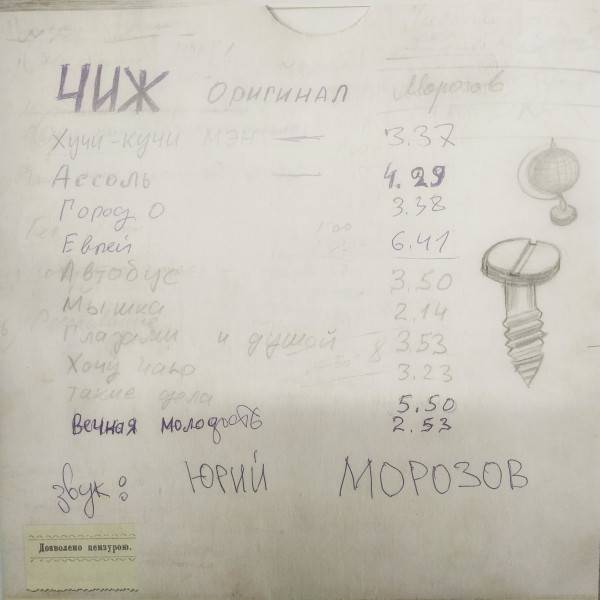 ЧИЖ ОРИГИНАЛ Морозов
Хучи-кучи МЭН 3.37
Ассоль 4.29
Город О 3.38
Еврей 6.41
Автобус 3.50
Мышка 2.14
Глазами и душой 3.53
Хочу чаю 3.23
Такие дела 5.50
Вечная молодость 2.53
звук: ЮРИЙ МОРОЗОВ
Дозволено цензурою.